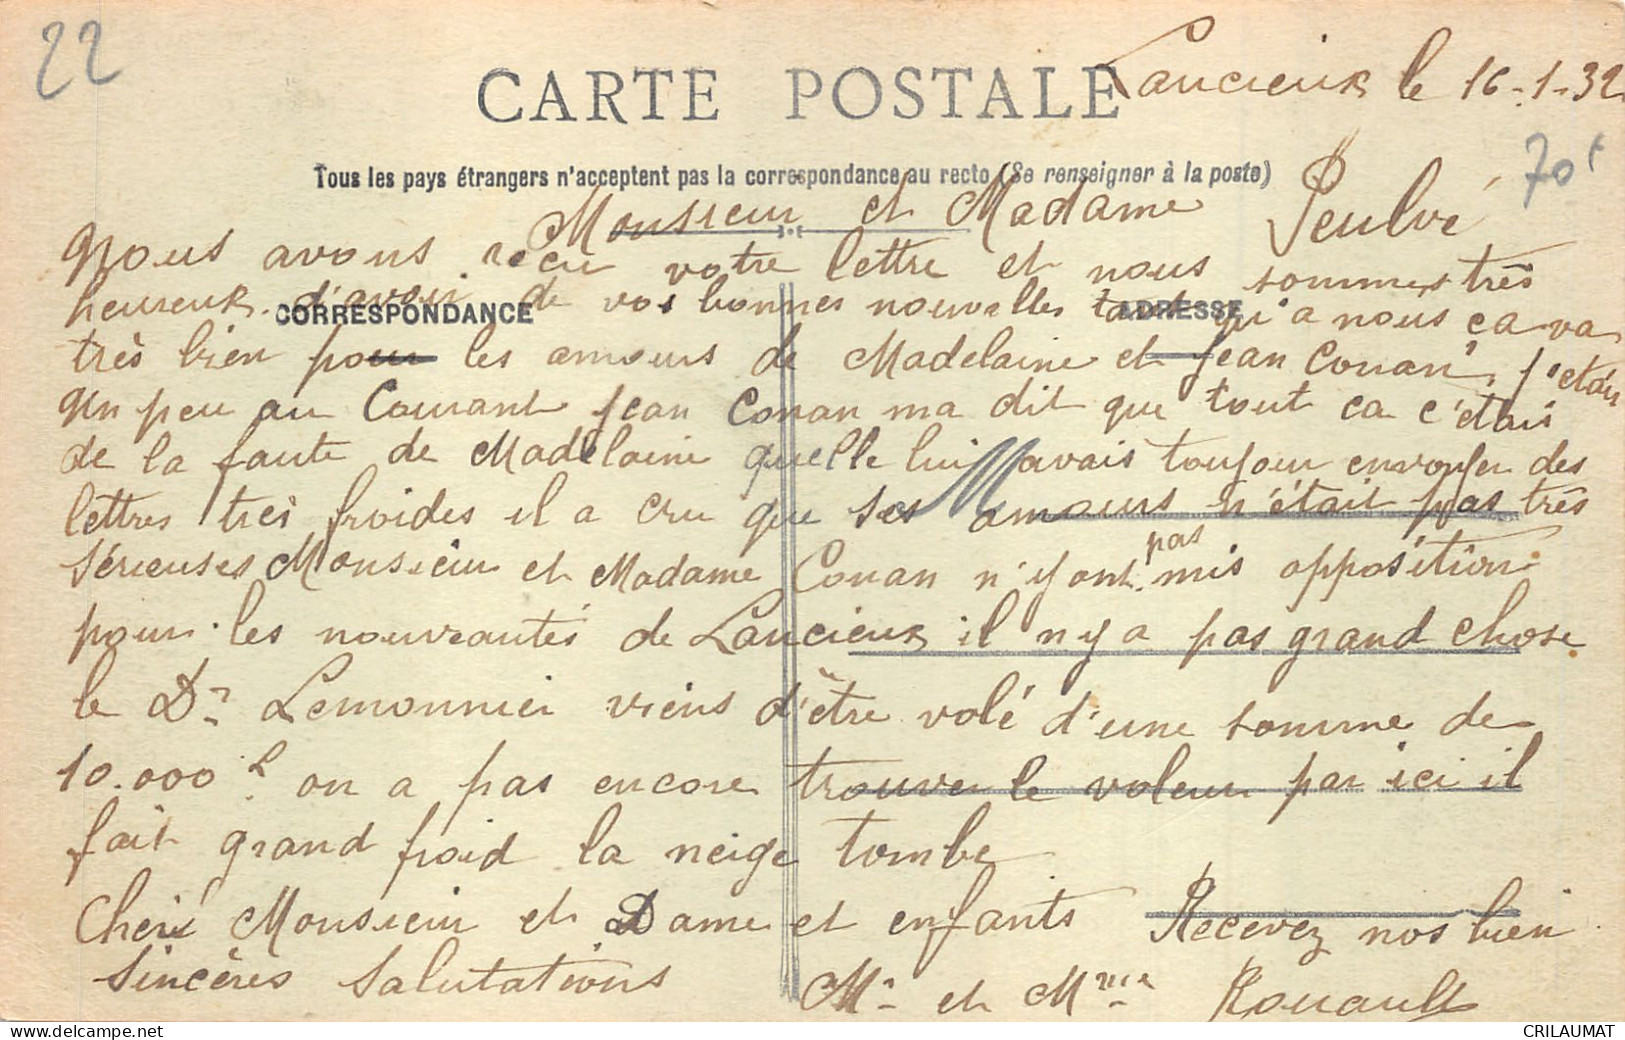 22
Lancieux le 16-1-32
CARTE POSTALE
70f
Tous les pays étrangers n'acceptent pas la correspondance au recto (Se renseigner à la poste)
Monsieur et Madame Peulvé
Nous avons reçu votre lettre et nous sommes très
heureux d'avoir de vos bonnes nouvelles tant qu'a nous ça va
CORRESPONDANCE
ADRESSE
très bien pour les amours de Madelaine et Jean Conan, j'etais
un peu au Courant Jean Conan ma dit que tout ca c'étais
de la faute de Madelaine quelle lui avais toujour envoyer des
lettres tres froides il a cru que ses amours n'était pas très
sérieuses Monsieur et Madame Conan n'y ont pas mis opposition
pour les nouveautés de Lancieux il n'y a pas grand chose
le Dr Lemonnier viens d'être volé d'une somme de
10.000 f on a pas encore trouver le voleur par ici il
fait grand froid la neige tombe
Chers Monsieur et Dame et enfants Recevez nos bien
sincères salutations Mr et Mme Rouault
CRILAUMAT